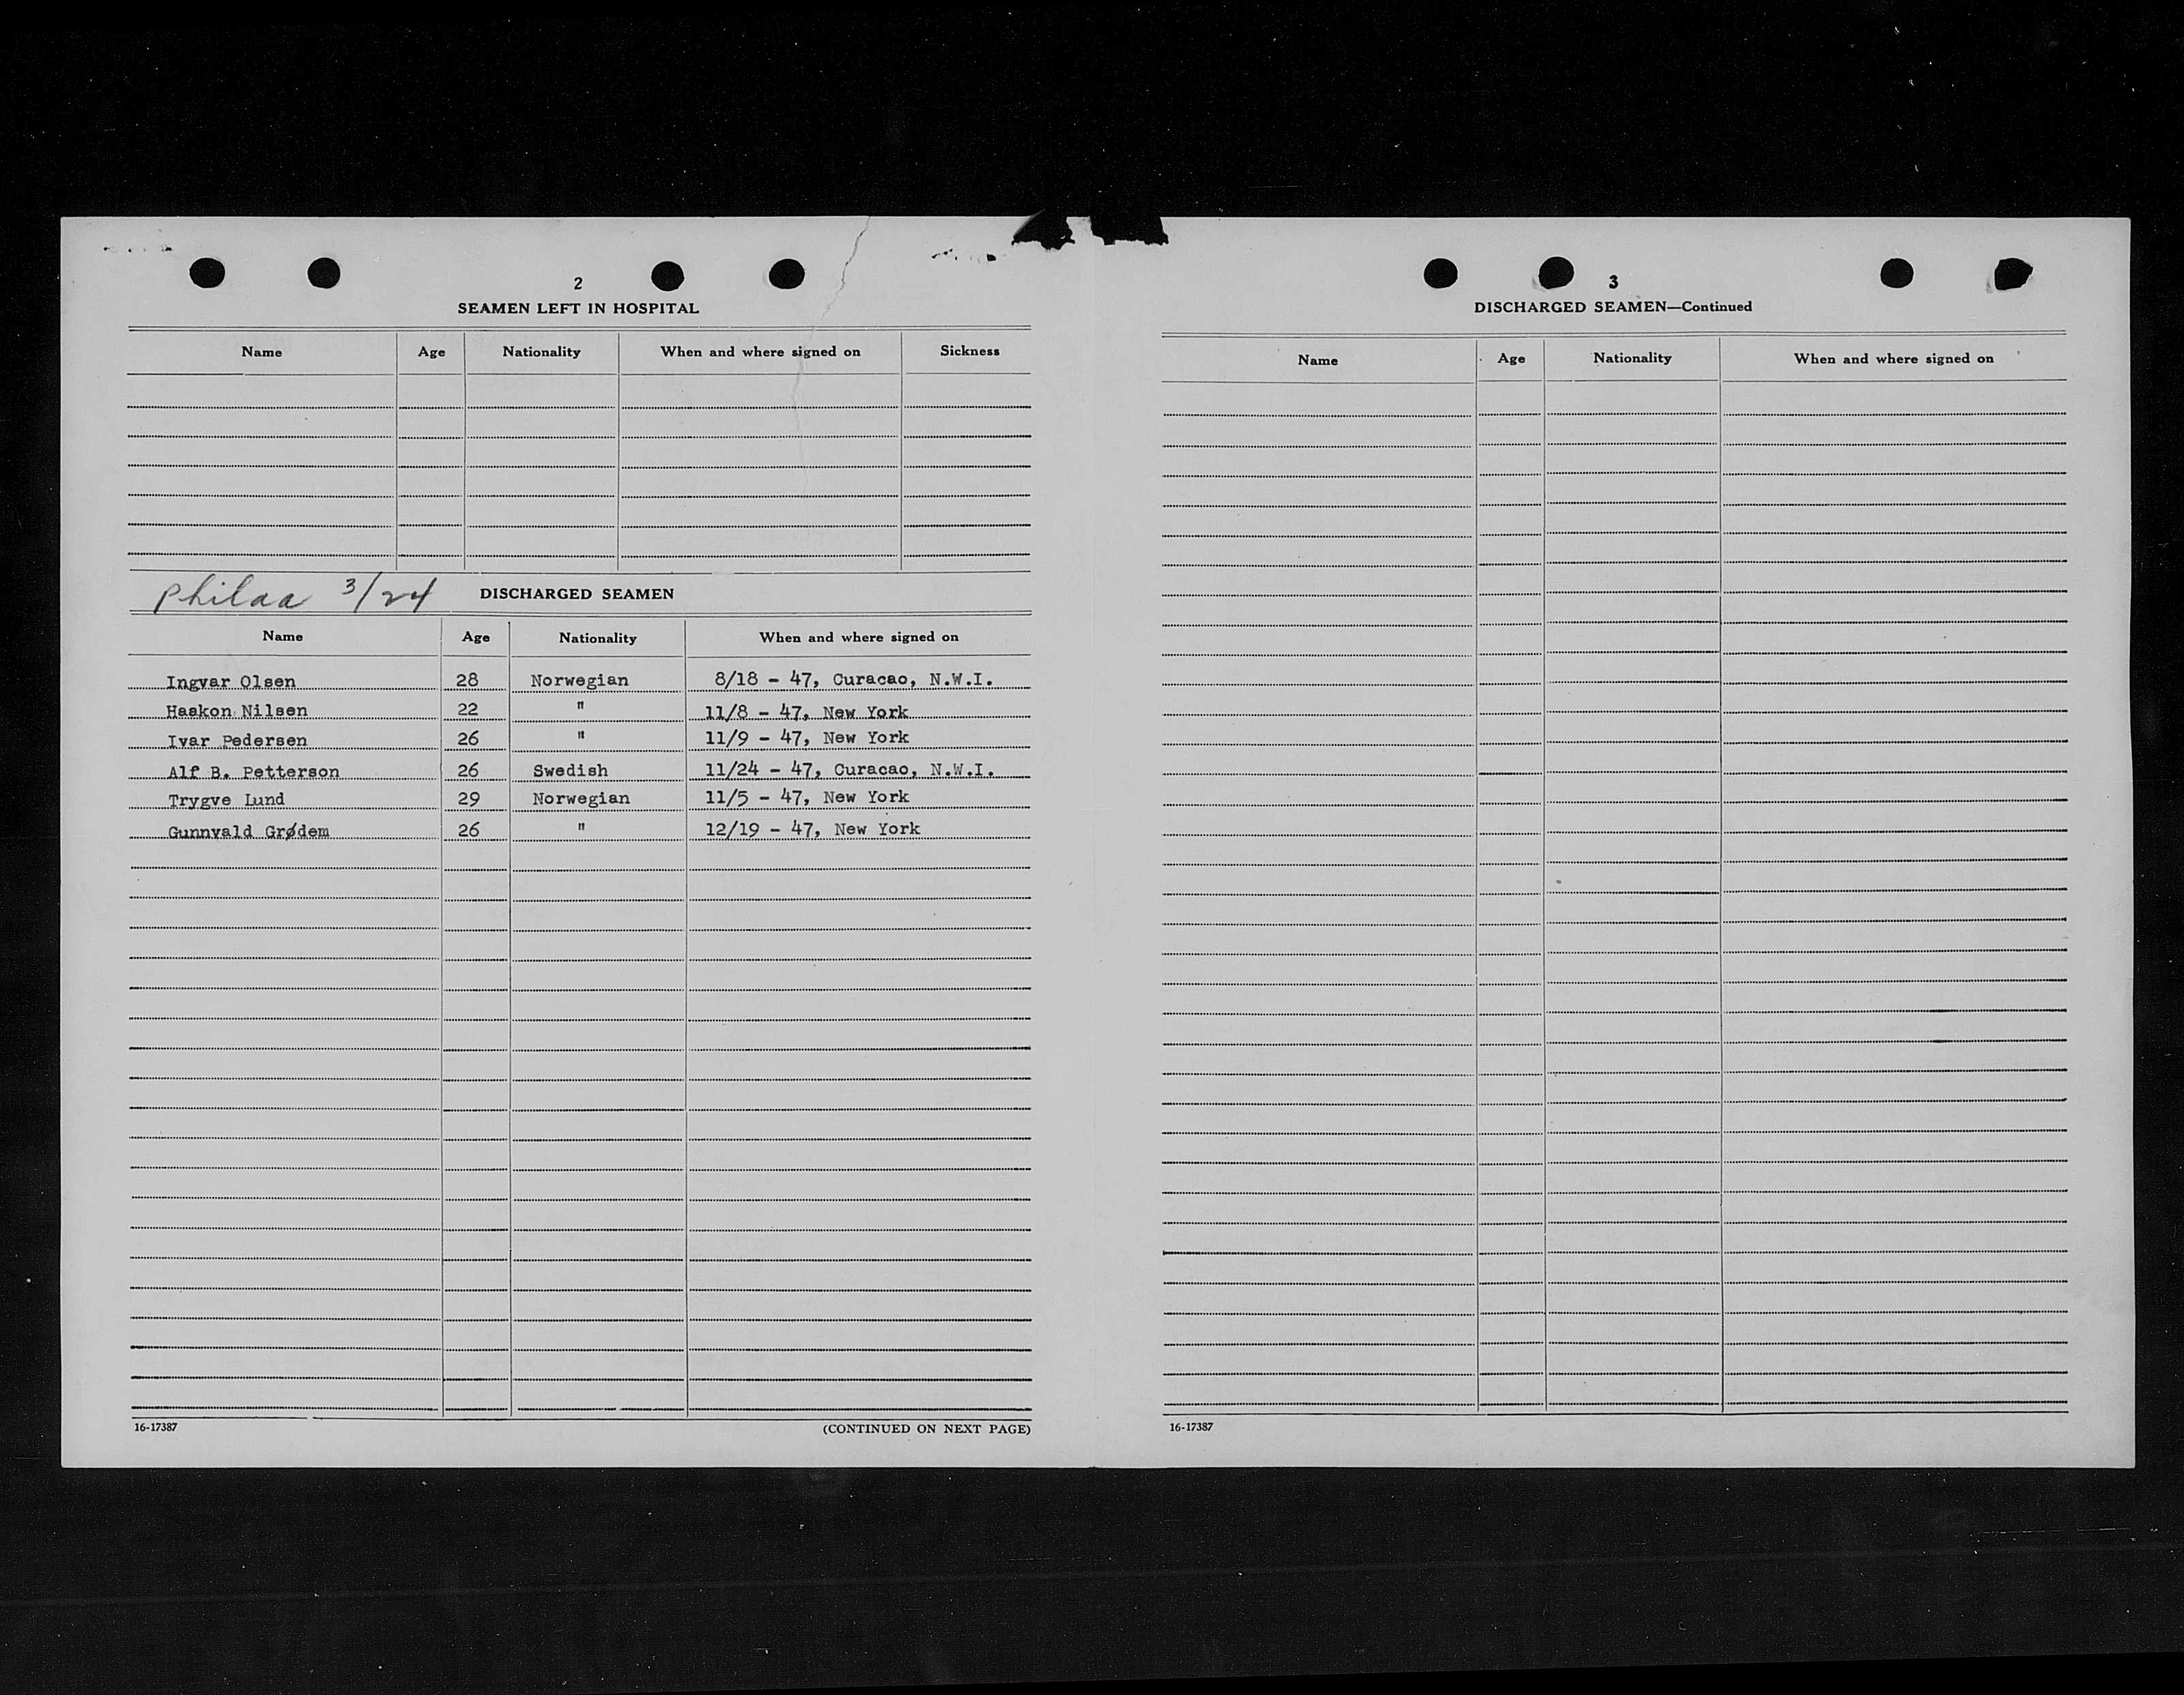 2
SEAMEN LEFT IN HOSPITAL
Name Age Nationality When and where signed on Sickness
Philaa 3/24 DISCHARGED SEAMEN
Name Age Nationality When and where signed on
Ingvar Olsen 28 Norwegian 8/18 - 47, Curacao, N.W.I.
Haakon Nilsen 22 " 11/8 - 47, New York
Ivar Pedersen 26 " 11/9 - 47, New York
Alf B. Petterson 26 Swedish 11/24 - 47, Curacao, N.W.I.
Trygve Lund 29 Norwegian 11/5 - 47, New York
Gunnvald Grødem 26 " 12/19 - 47, New York
16-17387 (CONTINUED ON NEXT PAGE)
3
DISCHARGED SEAMEN—Continued
Name Age Nationality When and where signed on
16-17387